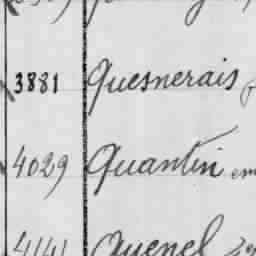 3881 Quesnerais
4029 Quantin
4141 Quenel